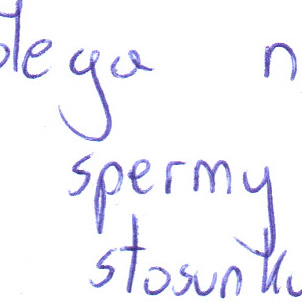 olega n
spermy
stosunku